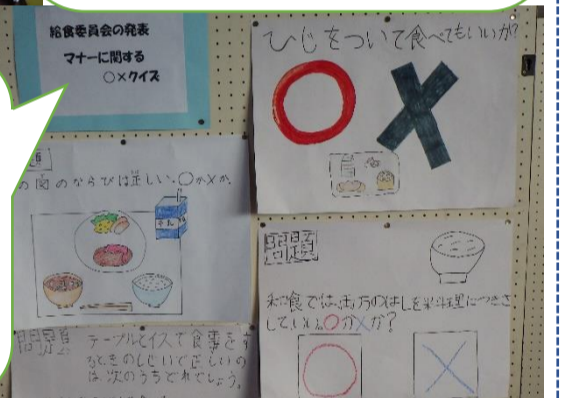 給食委員会の発表
マナーに関する
○×クイズ
ひじをついて食べてもいいか?
題
の図のならびは正しい。○か×か。
ぎゅう乳
問題
和食では、片方のはしを料理につきさ
していい。○か×か?
問題
テーブルとイスで食事をす
るときのしせいで正しいの
は次のうちどれでしょう。